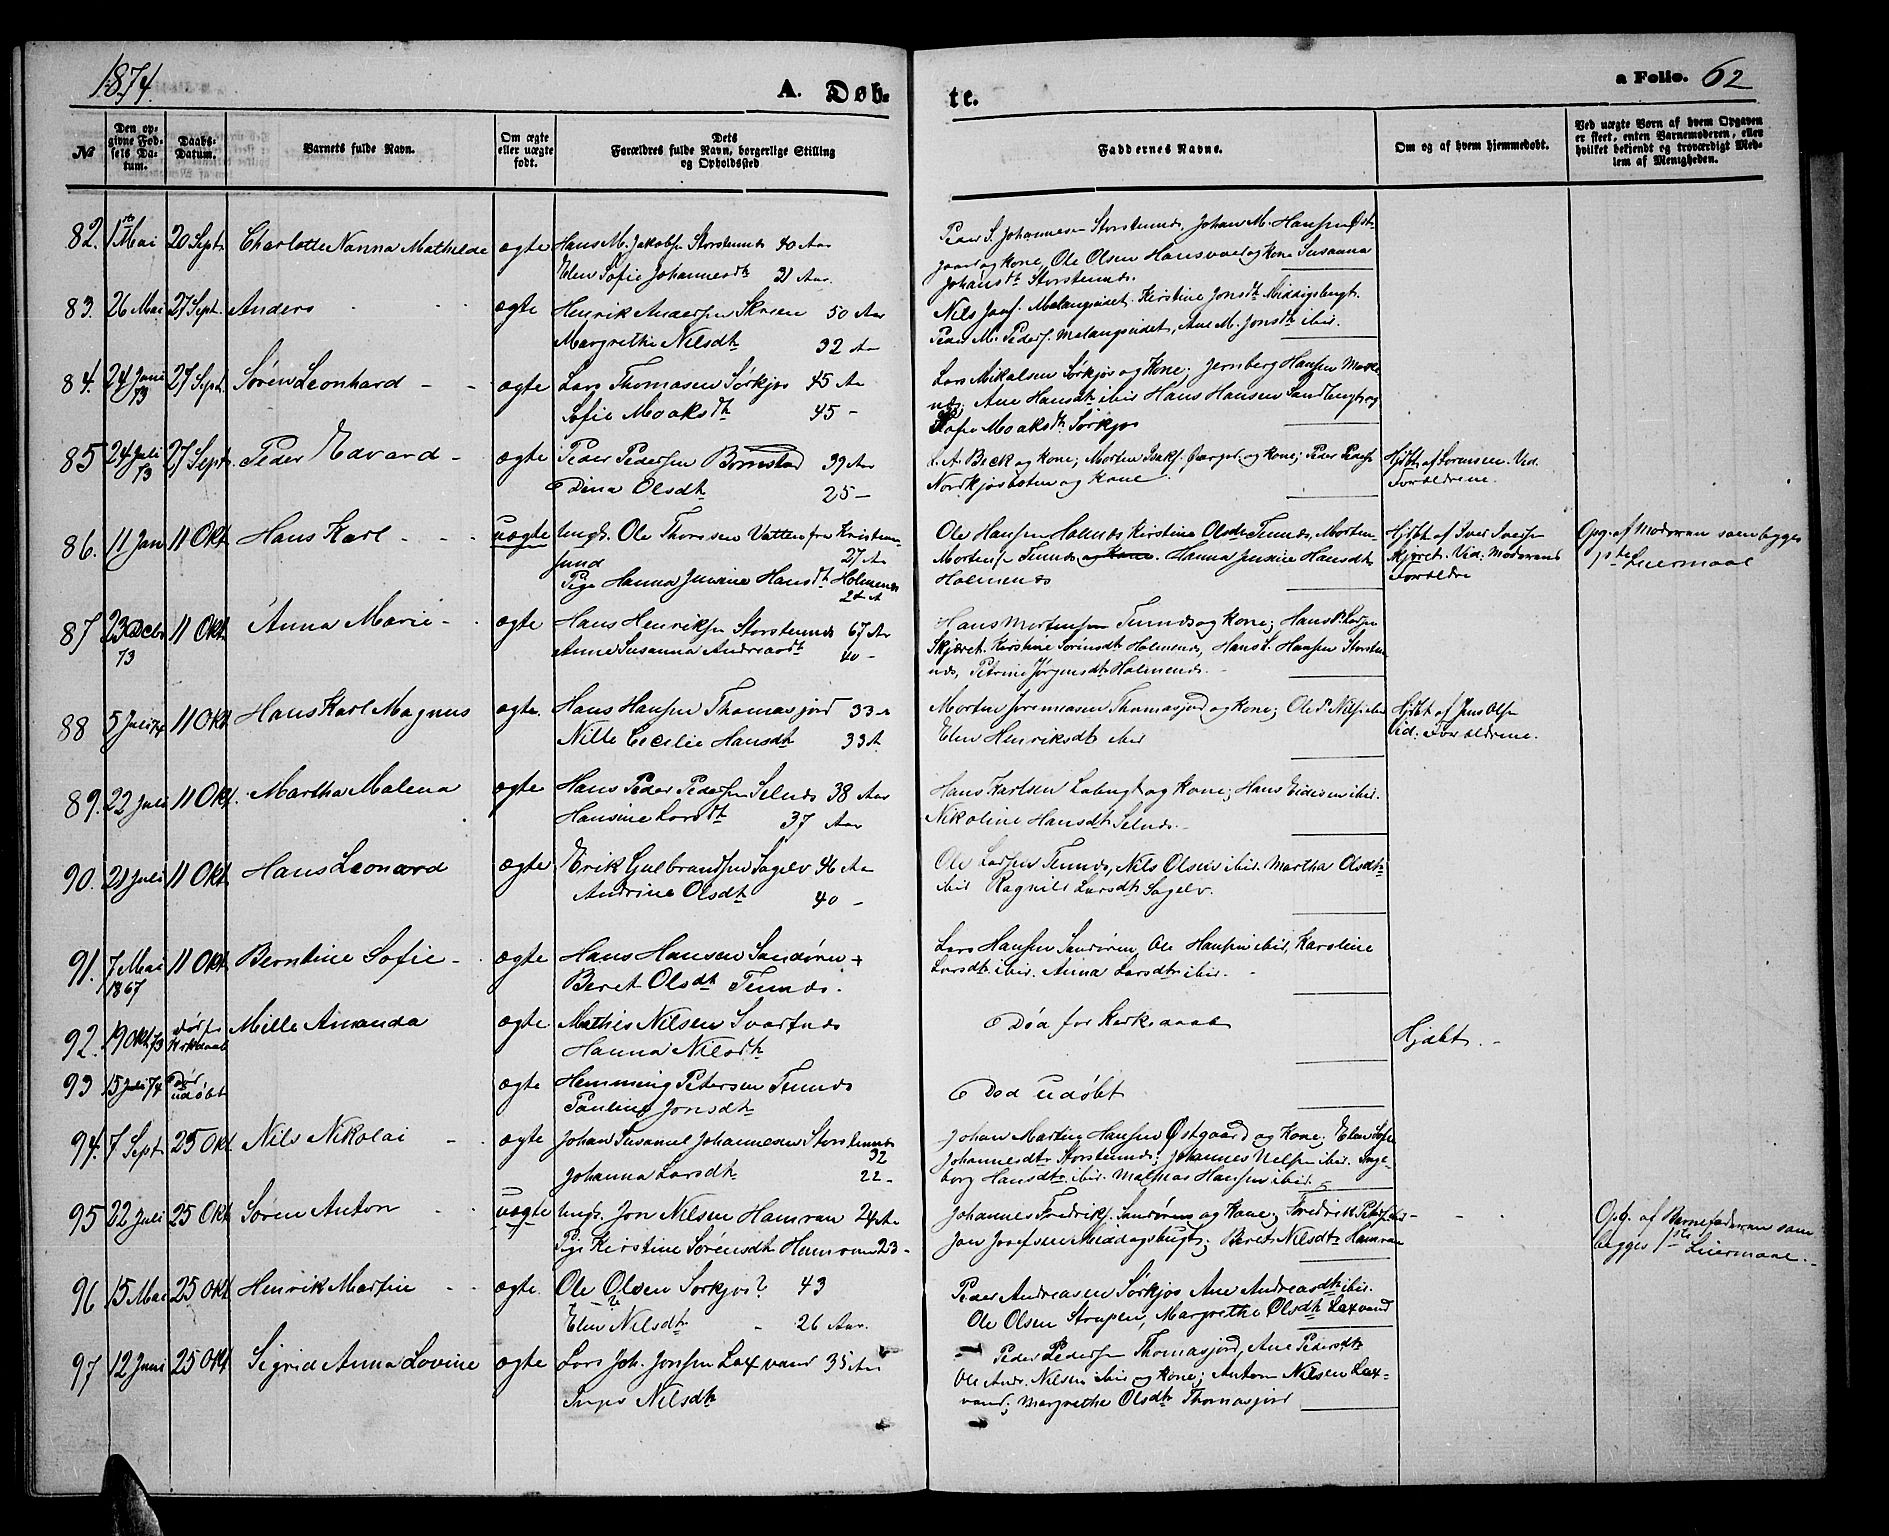 1874.
A. Døb-
te.
a Folio. 62
№
Den op-
givne Fød-
sels Da-
tum.
Daabs-
Datum.
Barnets fulde Navn.
Om ægte
eller uægte
født.
Dets
Forældres fulde Navn, borgerlige Stilling
og Opholdssted
Faddernes Navne.
Om og af hvem hjemmedøbt.
Ved uægte Børn af hvem Opgaven
er skeet, enten Barnemoderen, eller
hvilket bekjendt og troværdigt Med-
lem af Menigheden.
82. 1ste Mai 20 Sept. Charlotte Nanna Mathilde ægte Hans M. Jakobsn Storstennes 40 Aar
Elen Sofie Johannesdtr 31 Aar.
Peder S. Johannesen Storstennes, Johan M. Hansen Øst-
gaard og Kone, Ole Olsen Hansvoll og Kone Susanna
Johansdtr Storstennes.
83. 26 Mai 27 Sept. Anders ægte Henrik Andersen Skreen 50 Aar
Margrethe Nilsdtr 32 Aa
Nils Josf. Malangseidet. Kirstine Jonsdtr Middagsbugt.
Peder M. Peders. Malangseidet, Ane M. Jonsdtr ibid.
84. 24 Juni 73 27 Sept. Søren Leonhard - - ægte Lars Thomasen Sørkjos 45 Aa
Sofie Moaksdtr 45 -
Lars Mikalsen Sørkjos og Kone; Jernberg Hansen
Ane Hansdtr ibid Hans Hansen Sandbugt og
Sofie Moaksdtr Sørkjos
85 24 Juli 73 27 Sept. Peder Edvard - ægte Peder Pedersen Bornstad 39 Aar
Dina Olsdtr 25 -
L. A. Beck og Kone; Morten Isaks. og Kone; Peder Peders.
Nordkjosbotn og Kone.
Hjdbt af Sørensen. Vid.
Forældrene.
86. 11 Jan 11 Okt Hans Karl - - - uægte Ungk. Ole Thorsen Vatten fra Kristian-
sund 27 Aa
Pige Hanna Jensine Hansdtr Holmenes
24 A
Ole Hansen Holmenes Kirstine Olsdtr Tennes, Morten
Mortensn Tennes og Kone. Hanna Jensine Hansdtr
Holmenes
Hjdbt af Iver Iversn
Skjæret. Vid: Moderens
Forældre
Opg. af Moderen som begges
1ste Leiermaal
87 23 Decbr 73 11 Okt. Anna Marie - ægte Hans Henriksn Storstennes 67 Aar
Anne Susanna Andreasdtr 40 -
Hans Mortensen Tennes og Kone; Hans P. Larsen
Skjæret. Kirstine Sørensdtr Holmenes, Hans L. Hansen Storsten-
nes, Petrine Jørgensdtr Holmenes. -
88 5 Juli 74 11 Okt Hans Karl Magnus ægte. Hans Hansen Thomasjord 33 Aa
Nille Cecilie Hansdtr 33 A
Morten Joremiasen Thomasjord og Kone; Ole P. Nils. ibid
Elen Henriksdtr ibid
Hjdbt af Jens Olsn
Vid: Forældrene.
89. 22 Juli 11 Okt. Martha Malena ægte Hans Peder Pedersen Selnes 38 Aar
Hansine Larsdtr 37 Aar
Hans Karlsen Labugt og Kone; Hans Eidesen ibid.
Nikoline Hansdtr Selnes. -
90. 21 Juli 11 Okt Hans Leonard ægte Erik Gulbrandsen Sagelv 46 Aa
Andrine Olsdtr 40 -
Ole Larsen Tennes, Nils Olsen ibid. Martha Olsdtr
ibid Ragnild Larsdtr Sagelv.
91. 7 Mai 1867 11 Okt Berntine Sofie - ægte Hans Hansen Sandøren +
Beret Olsdtr Tennes.
Lars Hansen Sandøren, Ole Hansen ibid, Karoline
Larsdtr ibid. Anna Larsdtr ibid. -
92. 19 Okt. 73 død før Kirkedaab Mille Amanda ægte Mathis Nilsen Svartnes
Hanna Nilsdtr
Død før Kirkedaab
Hjdbt. -
93 15 Juli 74 Død udøbt ægte Hemming Petersen Tennes
Pauline Jonsdtr
Død udøbt
94. 7 Sept. 25 Okt. Nils Nikolai - ægte Johan Susanul Johannesen Storstennes
32
Johanna Larsdtr 22 -
Johan Martin Hansen Østgaard og Kone; Elen Sofie
Johannesdtr Storstennes; Johannes Nilsen ibid. Inge-
borg Hansdtr ibid. Mathias Hansen ibid.
95 22 Juli 25 Okt Søren Anton - - uægte Ungk. Jon Nilsen Hamran 24 Aa
Pige Kirstine Sørensdtr Hamran 23 -
Johannes Fredriks. Sandørens og Kone; Fredrik Peders. ibid -
Jon Josefsen Middagsbugt; Beret Nilsdtr Hamran
Opg. af Barnefaderen som
begges 1ste Leiermaal. -
96 15 Mai 25 Okt Henrik Martin - - ægte. Ole Olsen Sørkjos? 43
Elen Nilsdtr - 26 Aar.
Peder Andreasen Sørkjos Ane Andreasdtr ibid.
Ole Olsen Strupen, Margrethe Olsdtr Laxvand
97 12 Juni 25 Okt. Sigrid Anna Lovine ægte Lars Joh. Jonsen Laxvand 35 Aa
Inger Nilsdtr
Peder Pedersen Thomasjord, Ane Pedersdtr
Ole Andr. Nilsen ibid og Kone; Anton Nilsen Lax-
vand; Margrethe Olsdtr Thomasjord